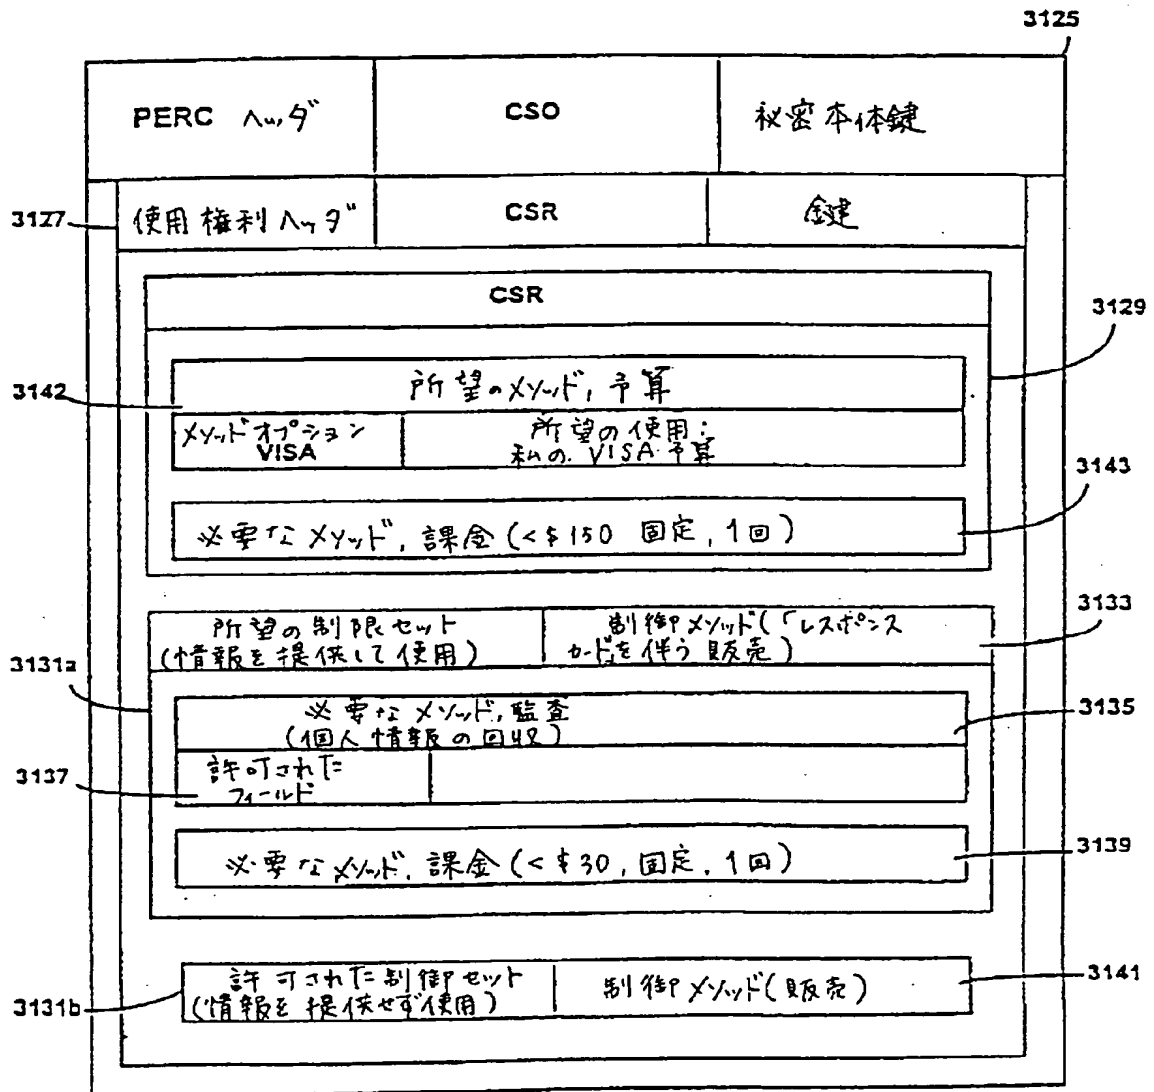 3125
PERC ヘッダ
CSO
秘密本体鍵
3127
使用権利ヘッダ
CSR
鍵
CSR
3129
3142
所望のメソッド, 予算
メソッドオプション
VISA
所望の使用:
私の VISA 予算
3143
必要なメソッド, 課金(<$150 固定, 1回)
3133
所望の制限セット
(情報を提供して使用)
制御メソッド(「レスポンス
カード」を伴う販売)
3131a
必要なメソッド, 監査
(個人情報の回収)
3135
3137
許可された
フィールド
必要なメソッド, 課金(<$30, 固定, 1回)
3139
3131b
許可された制御セット
(情報を提供せず使用)
制御メソッド(販売)
3141